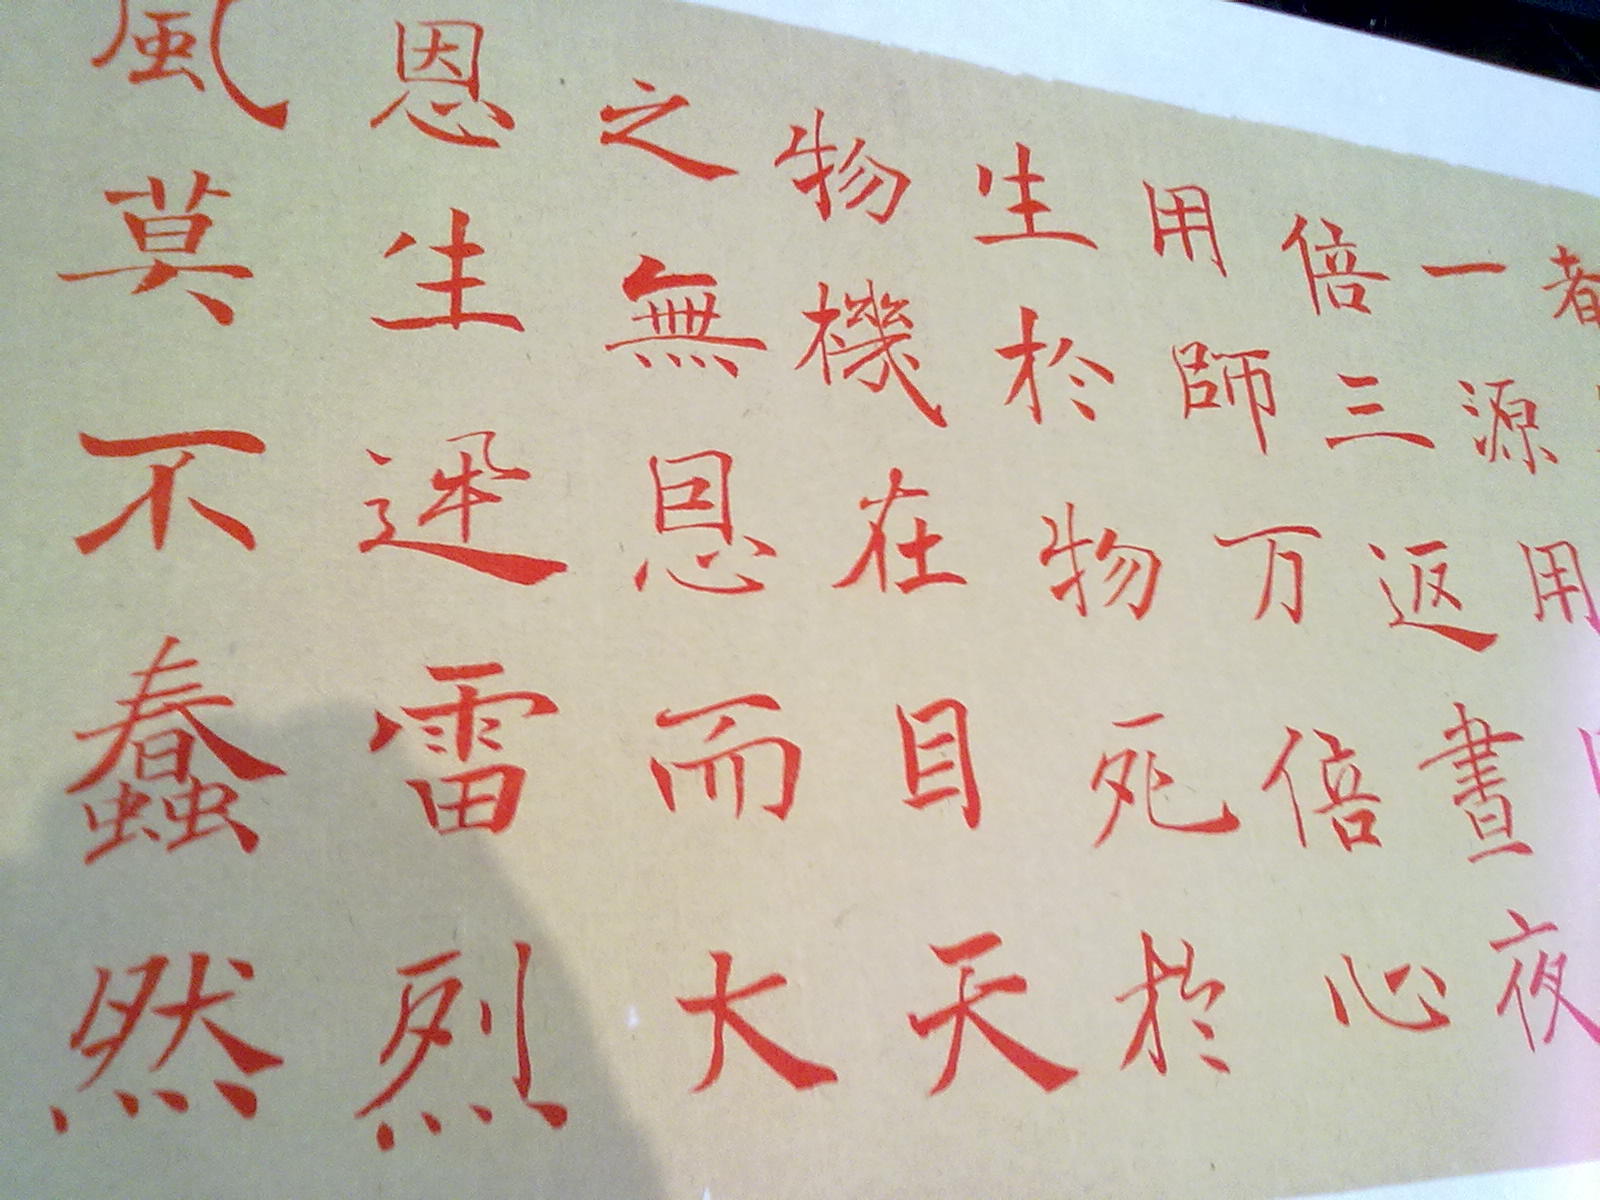 者
一源用
倍三返晝夜
用師万倍心
生於物死於
物機在目天
之無恩而大
恩生迅雷烈
風莫不蠢然